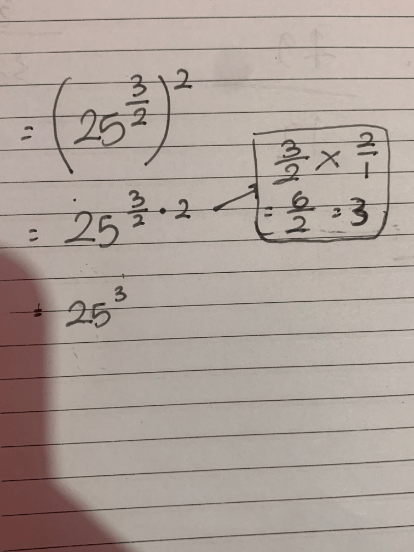 = (25^(3/2))^2
= 25^(3/2 · 2)
3/2 × 2/1
= 6/2 = 3
= 25^3